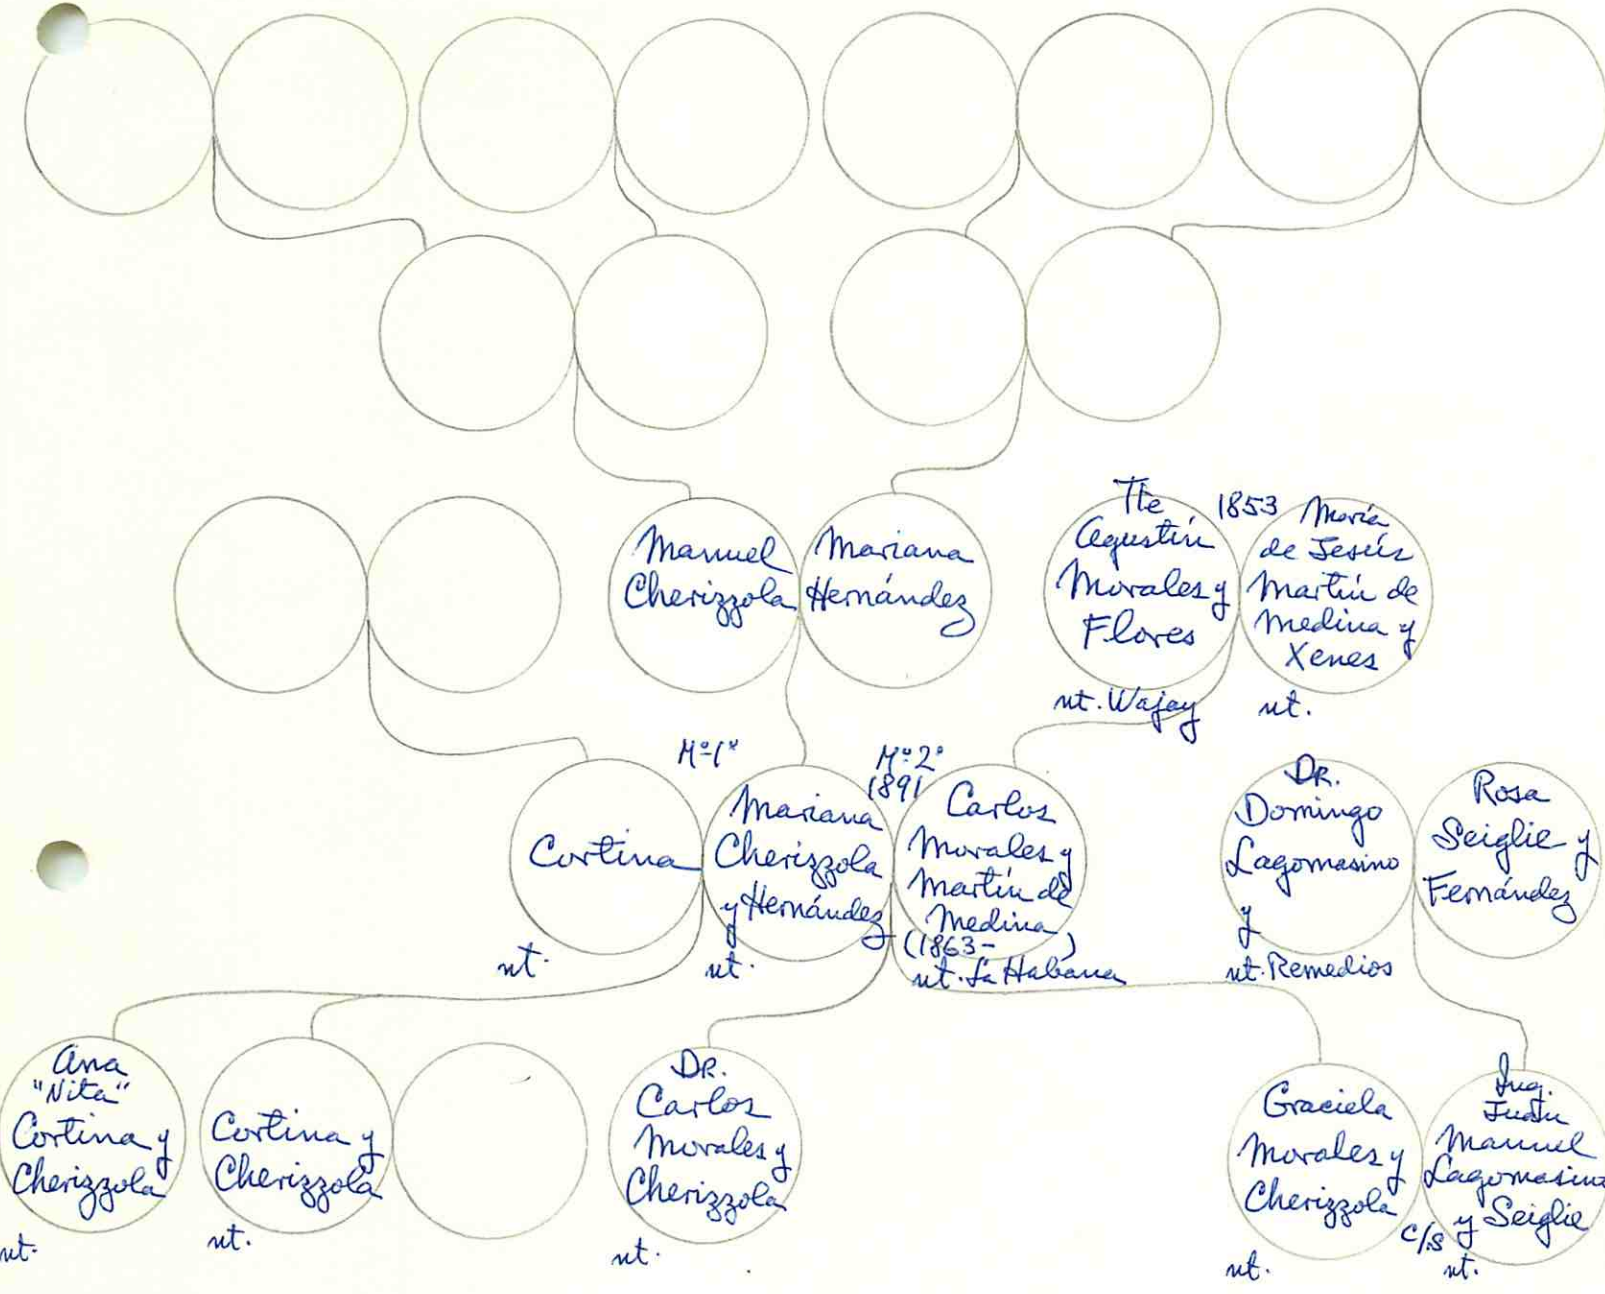 Manuel
Cherizzola
Mariana
Hernández
Tte
Agustín
Morales y
Flores
nt. Wajay
1853
María
de Jesús
Martín de
Medina y
Xenes
nt.
Cortina
nt.
Mº 1º
Mariana
Cherizzola
y Hernández
nt.
Mº 2º
1891
Carlos
Morales y
Martín de
Medina
(1863- )
nt. La Habana
DR.
Domingo
Lagomasino
y
nt. Remedios
Rosa
Seiglie y
Fernández
Ana
"Nita"
Cortina y
Cherizzola
nt.
Cortina y
Cherizzola
nt.
DR.
Carlos
Morales y
Cherizzola
nt.
Graciela
Morales y
Cherizzola
nt.
c/s
Ing.
Juan
Manuel
Lagomasino
y Seiglie
nt.